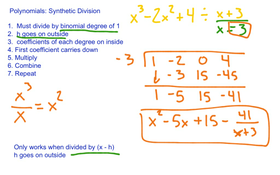 Polynomials: Synthetic Division
1) Must divide by binomial degree of 1
2) h goes on outside
3) coefficients of each degree on inside
4) First coefficient carries down
5) Multiply
6) Combine
7) Repeat
x³ - 2x² + 4 ÷ x+3
x = -3
-3 | 1 -2 0 4
↓ -3 15 -45
1 -5 15 -41
x² - 5x + 15 - 41/(x+3)
x³/x = x²
Only works when divided by (x - h)
h goes on outside